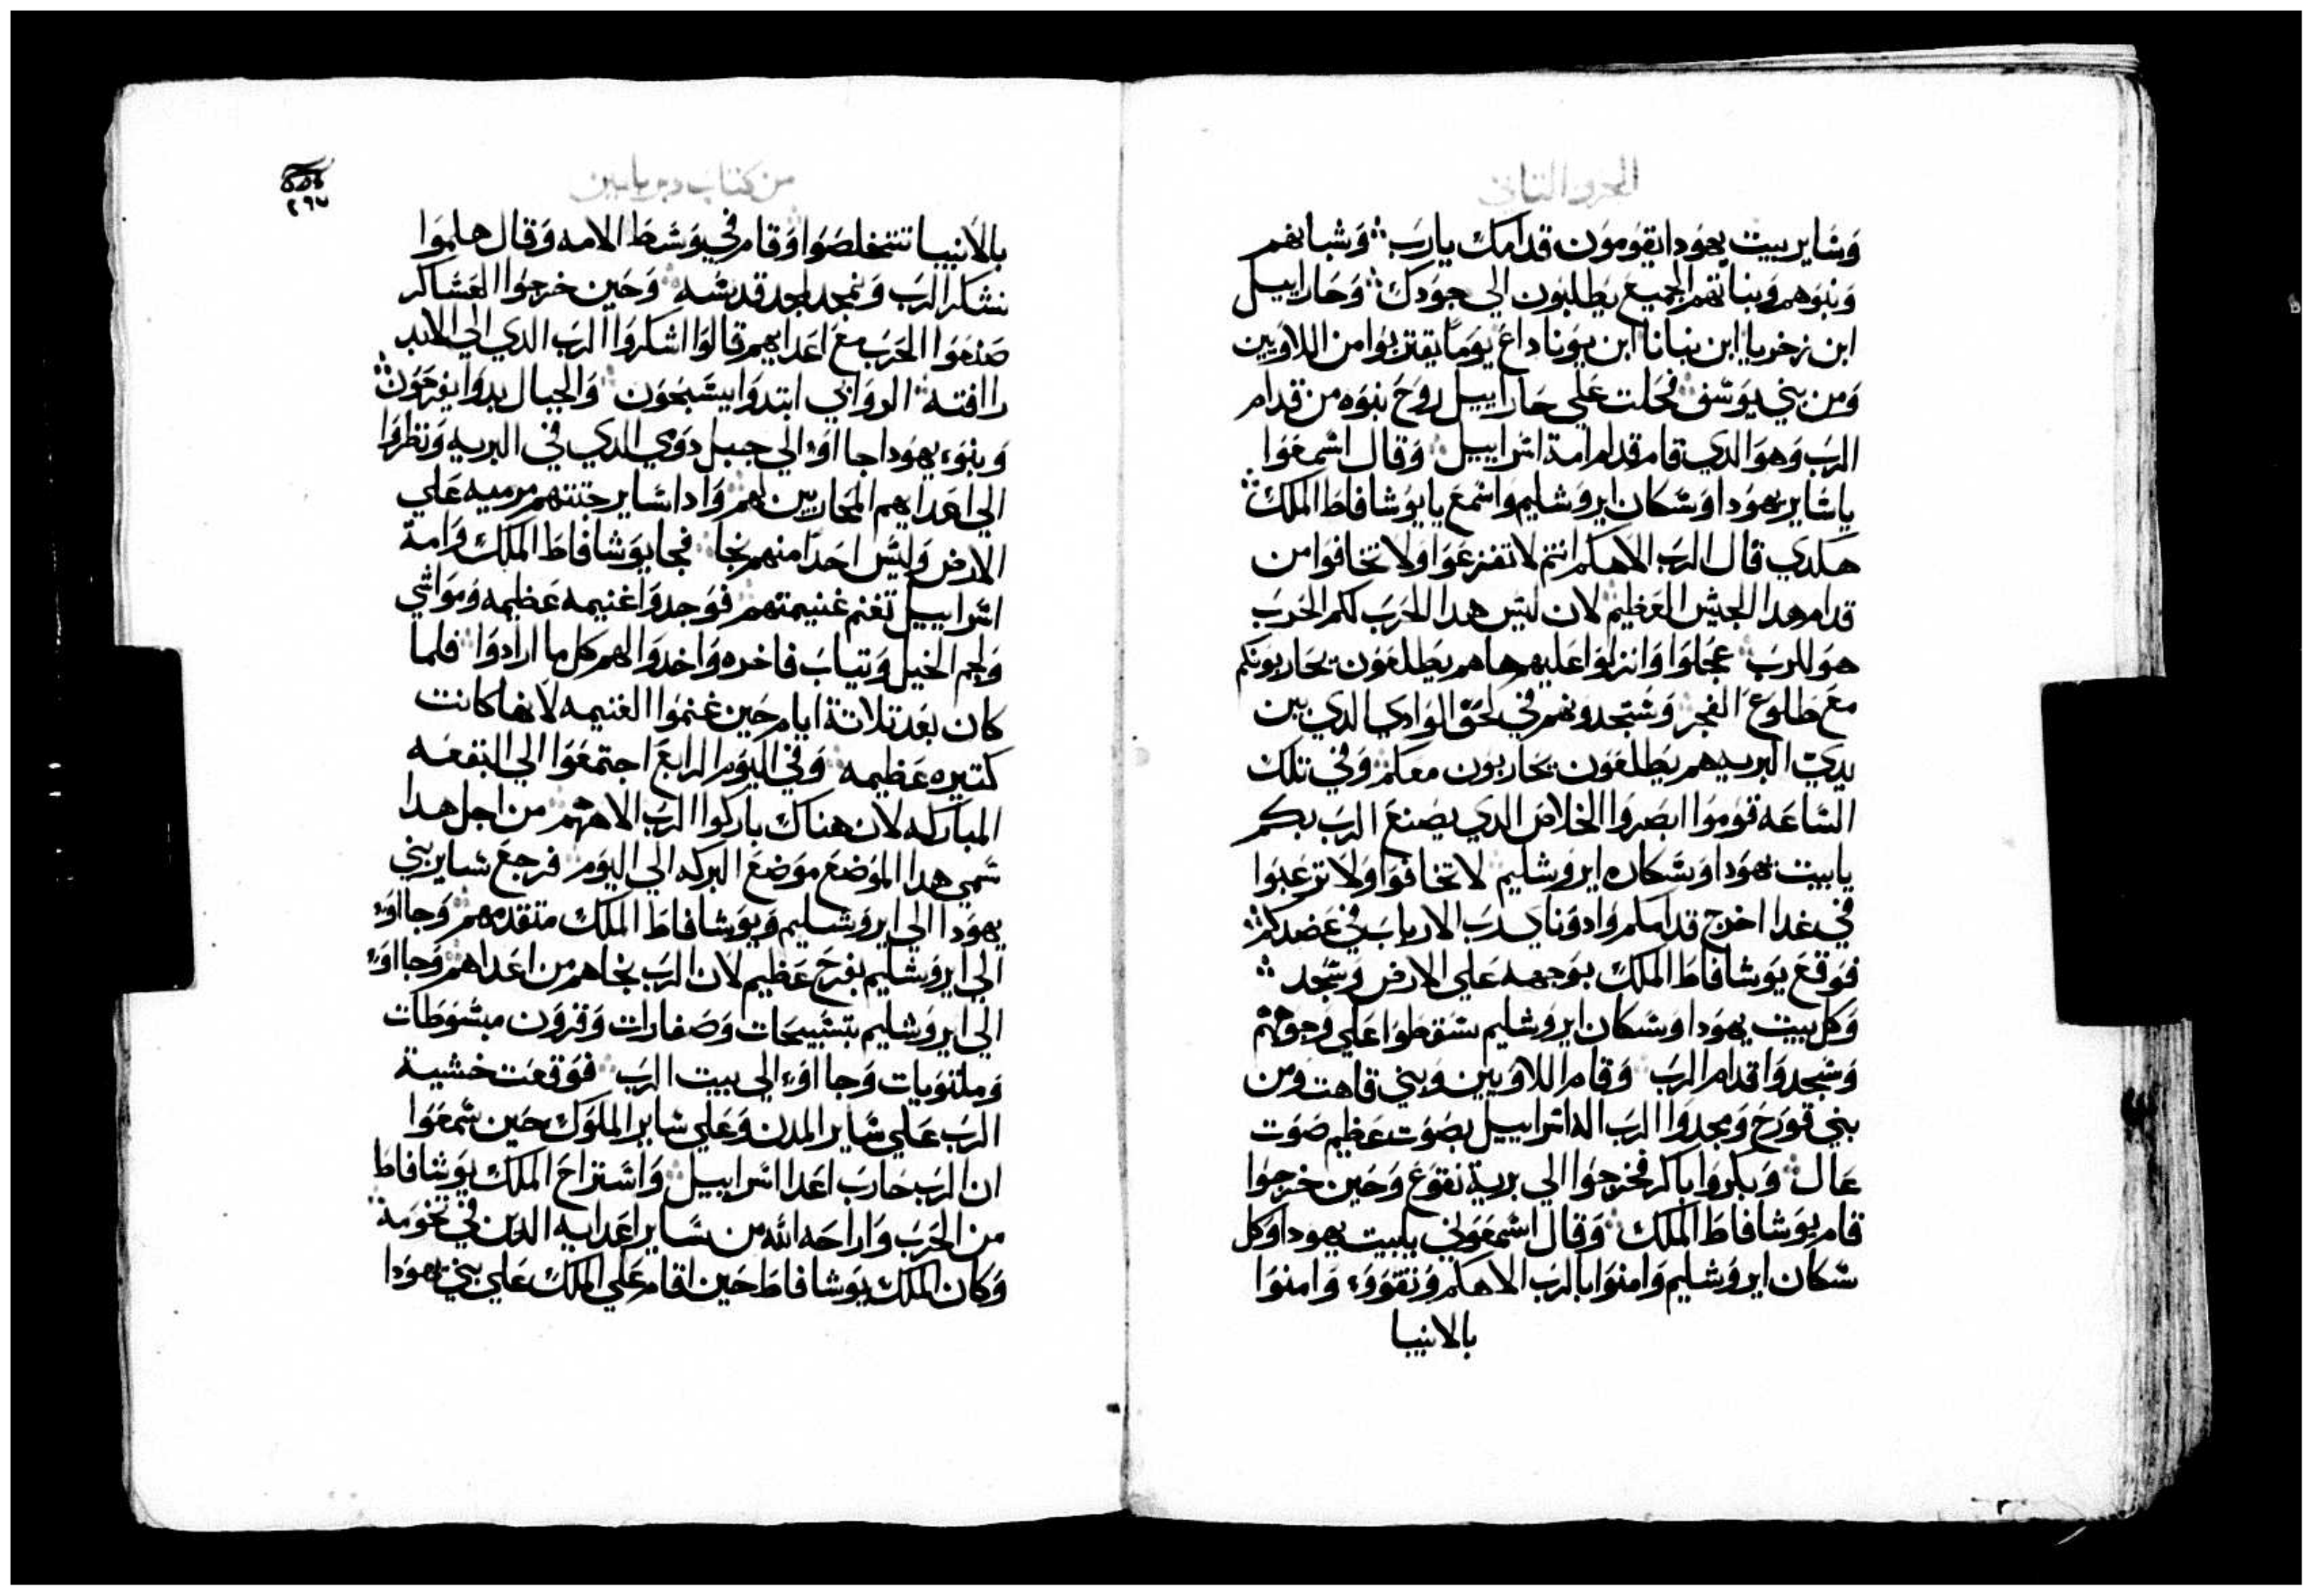 الجزء الثاني
وساير بيت يهودا يقومون قدامك يا رب وشبانهم
وبنوهم وبناتهم الجميع يطلبون الي جودك وحازاييل
ابن زخريا ابن بنانا ابن يوناداع يوما يقتربوا من اللاويين
ومن بني يوسف فحلت علي حازاييل روح نبوه من قدام
الرب وهو الدي قام قدام امة اسراييل وقال اسمعوا
يا ساير يهودا وسكان ايروشليم واسمع يا يوشافاط الملك
هكدي قال الرب الاهكم انتم لا تفزعوا ولا تخافوا من
قدام هدا الجيش العظيم لان ليس هدا الحرب لكم الحرب
هو للرب عجلوا وانزلوا عليهم هاهم يطلعون يحاربونكم
مع طلوع الفجر وستجدونهم في لحق الوادي الدي بين
يدي البريه هم يطلعون يحاربون معكم وفي تلك
الساعه قوموا ابصروا الخلاص الدي يصنع الرب بكم
يا بيت يهودا وسكان ايروشليم لا تخافوا ولا ترعبوا
في غدا اخرج قدامكم وادوناي رب الارباب في عضدكم
فوقع يوشافاط الملك بوجهه علي الارض وسجد
وكل بيت يهودا وسكان ايروشليم سقطوا علي وجوههم
وسجدوا قدام الرب وقام اللاويين وبني قاهت ومن
بني قورح ومجدوا الرب اله اسراييل بصوت عظيم صوت
عال وبكروا باكر فخرجوا الي برية تقوع وحين خرجوا
قام يوشافاط الملك وقال اسمعوني يا بيت يهودا وكل
سكان ايروشليم وامنوا بالرب الاهكم وتقووء وامنوا
بالانبيا
من كتاب دبريامين
٢٩٧
بالانبيا تتخلصوا وقام في وسط الامه وقال هلموا
نشكر الرب ونمجد لمجد قدسه وحين خرجوا العساكر
صنعوا الحرب مع اعدايهم قالوا اشكروا الرب الدي الي الابد
رافته الروابي ابتدوا يسبحون والجبال بدوا يفرحون
وبنوء يهودا جااوء الي جبل دومي الدي في البريه ونظروا
الي اعدايهم المحاربين لهم وادا ساير جتتهم مرميه علي
الارض وليس احدا منهم نجا فجا يوشافاط الملك وامة
اسراييل تغنم غنيمتهم فوجدوا غنيمه عظيمه ومواشي
ولجم الخيل وتياب فاخره واخدوا لهم كل ما ارادوا فلما
كان بعد تلاتة ايام حين غنموا الغنيمه لانها كانت
كتيره عظيمه وفي اليوم الرابع اجتمعوا الي البقعه
المباركه لان هناك باركوا الرب الاههم من اجل هدا
سمي هدا الموضع موضع البركه الي اليوم فرجع ساير بني
يهودا الي ايروشليم ويوشافاط الملك متقدمهم وجااوء
الي ايروشليم بفرح عظيم لان الرب نجاهم من اعداهم وجااوء
الي ايروشليم بتسبيحات وصفارات وقرون مبسوطات
وملتويات وجااوء الي بيت الرب فوقعت خشية
الرب علي ساير المدن وعلي ساير الملوك حين سمعوا
ان الرب حارب اعدا اسراييل واستراح الملك يوشافاط
من الحرب واراحه الله من ساير اعدايه الدين في تخومة
وكان الملك يوشافاط حين اقام علي الملك علي بني يهودا